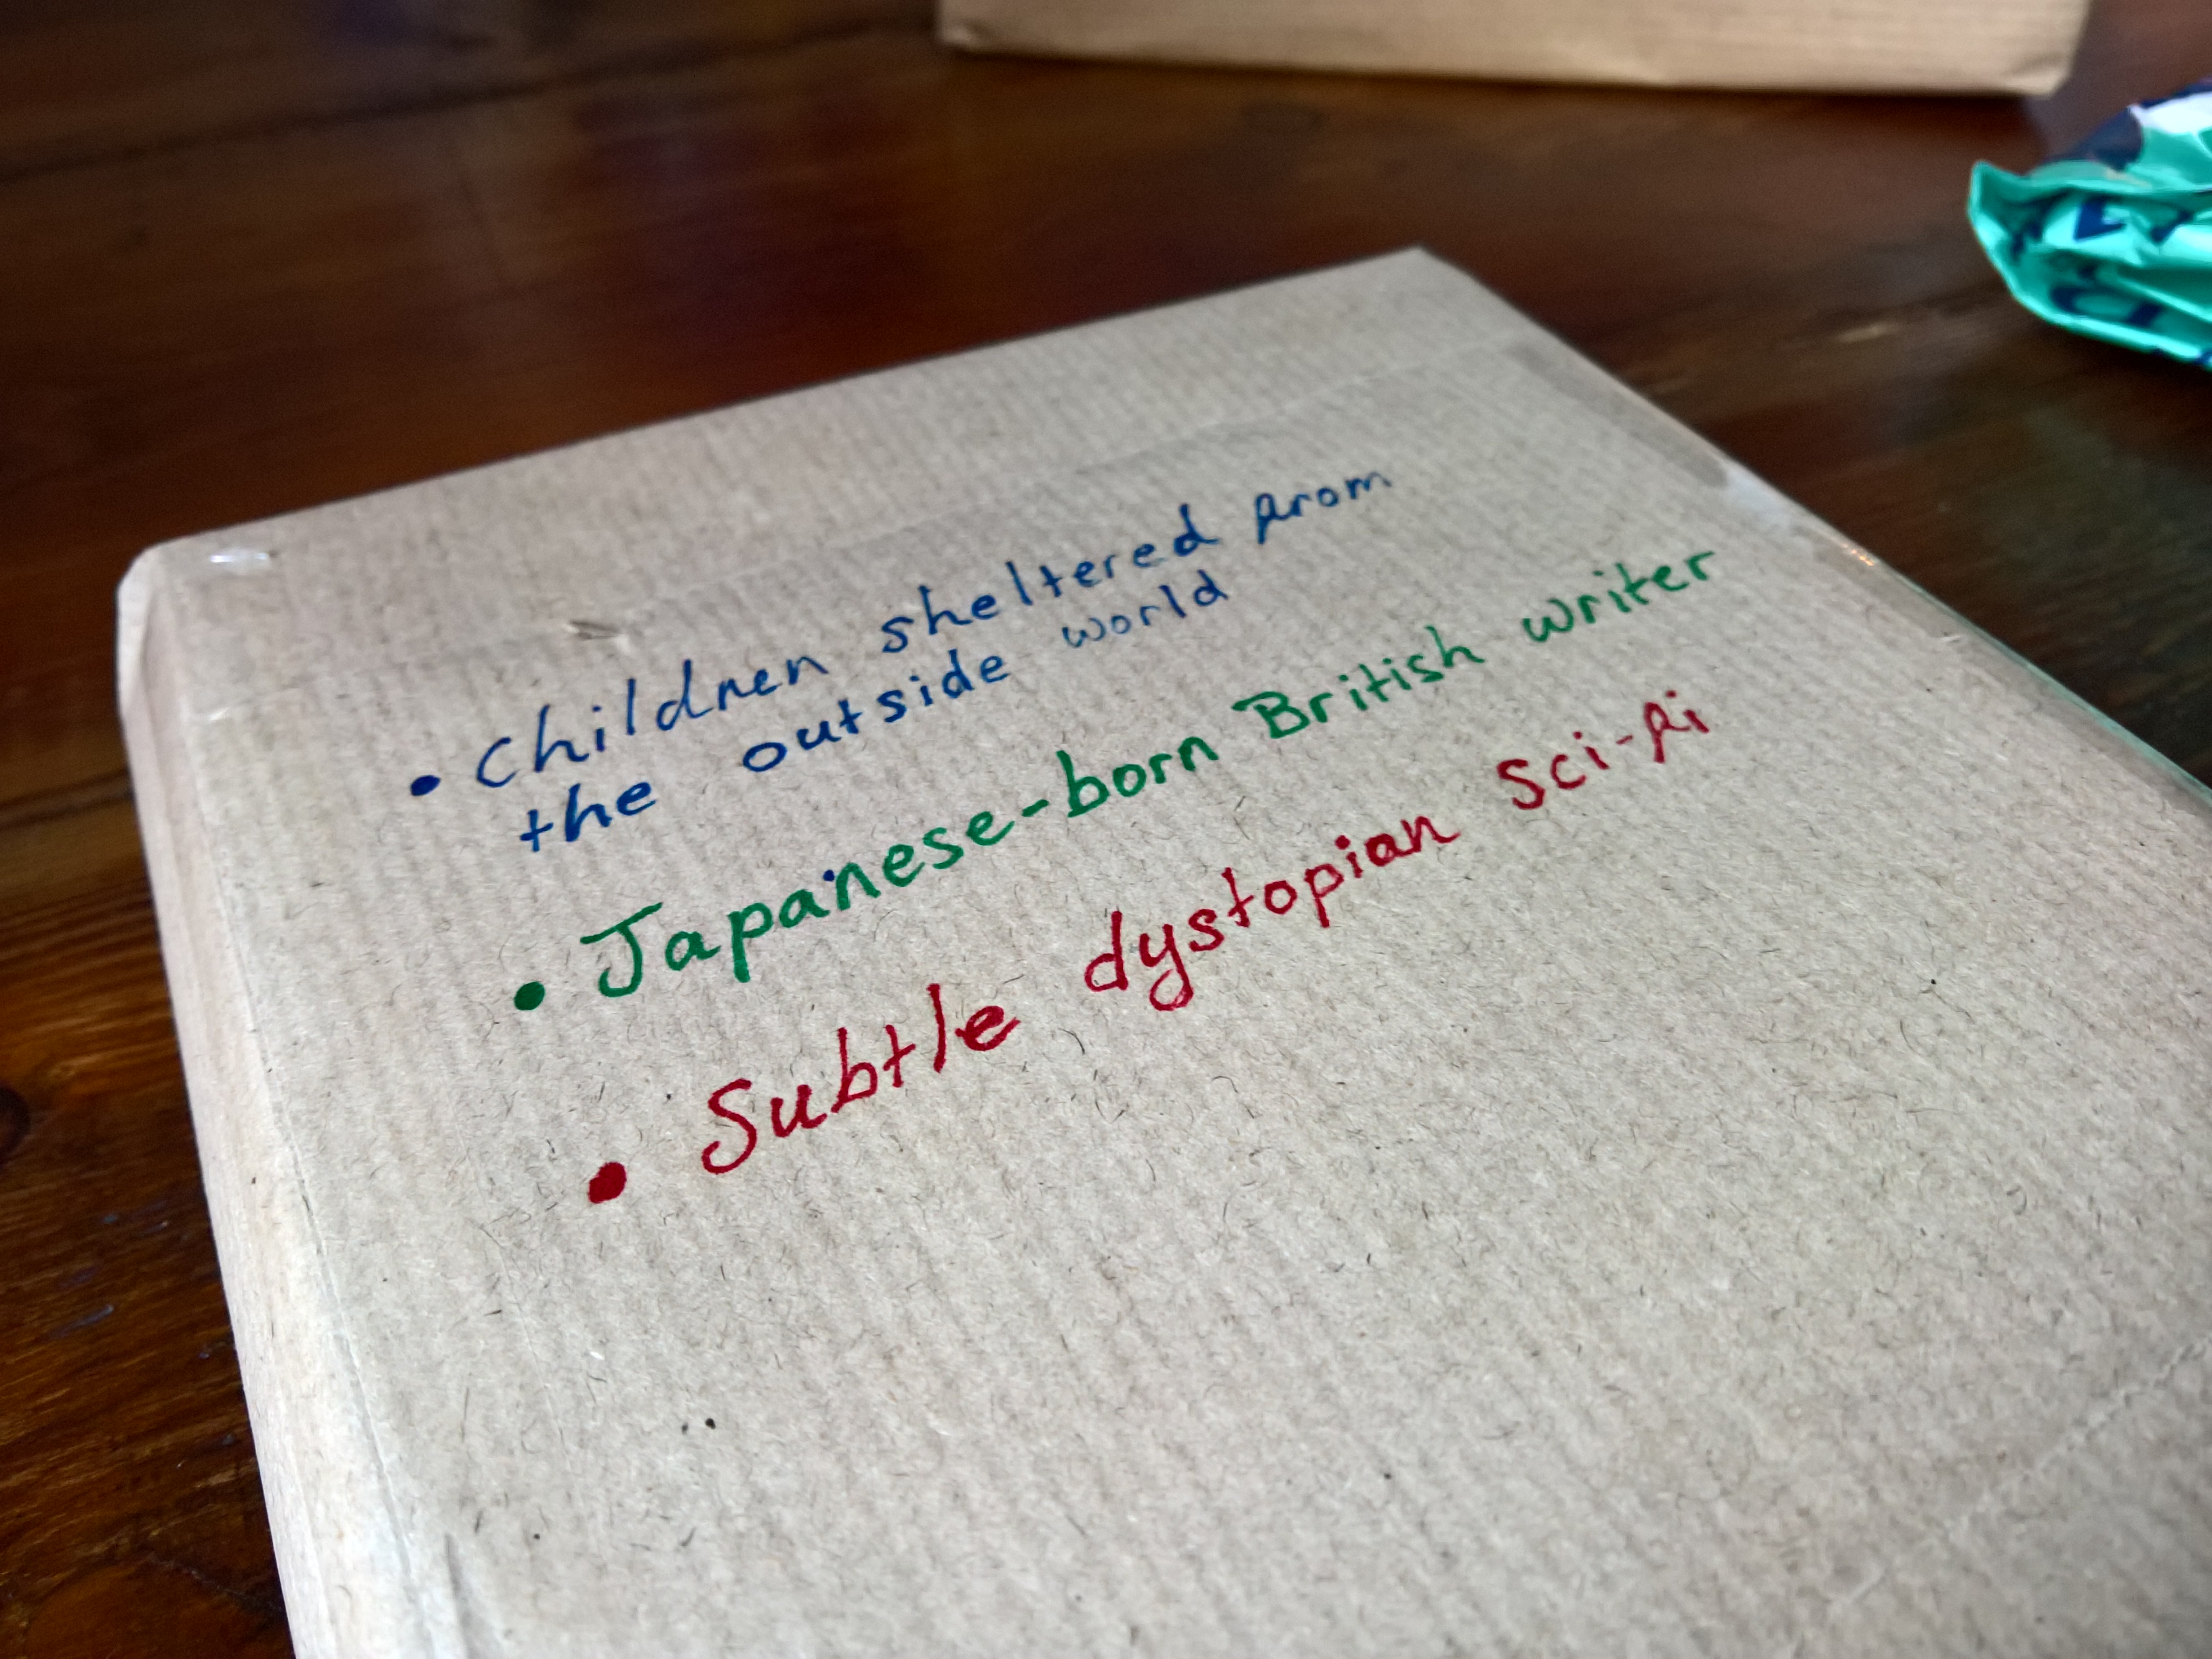 • Children sheltered from
the outside world
• Japanese-born British writer
• Subtle dystopian Sci-fi